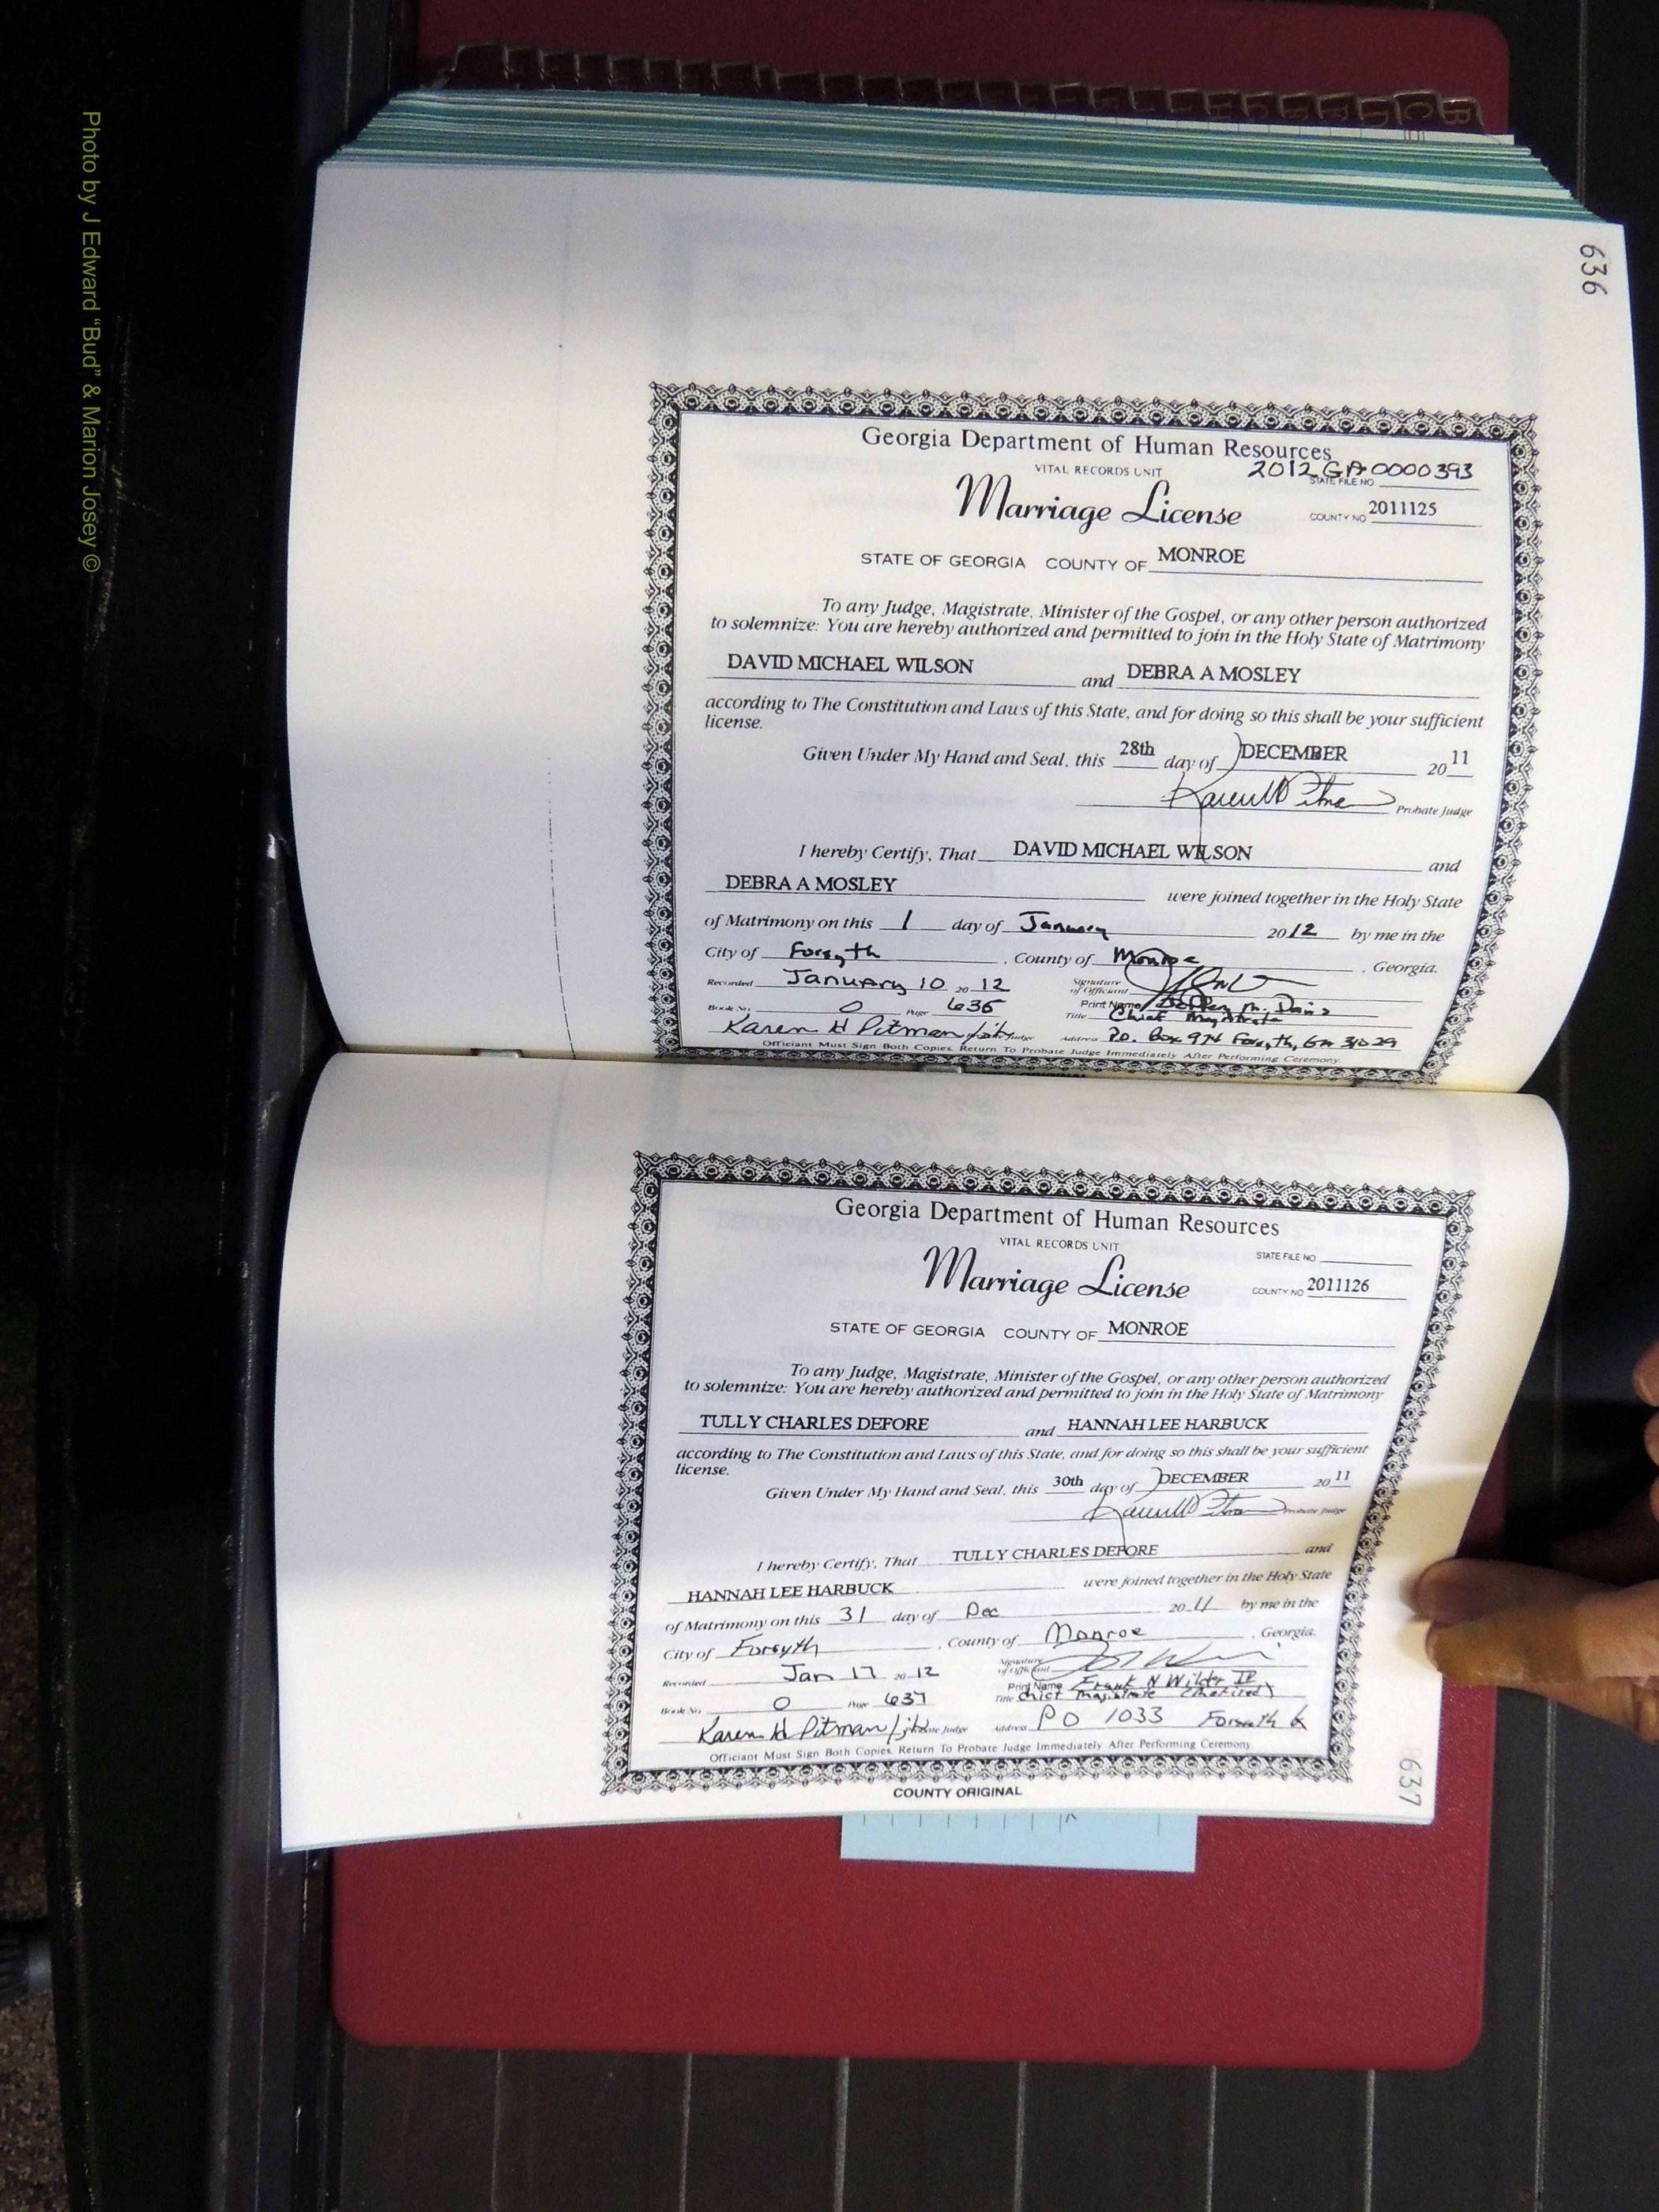 636
Georgia Department of Human Resources
VITAL RECORDS UNIT
2012 GA 0000393
STATE FILE NO
Marriage License
COUNTY NO 2011125
STATE OF GEORGIA COUNTY OF MONROE
To any Judge, Magistrate, Minister of the Gospel, or any other person authorized
to solemnize: You are hereby authorized and permitted to join in the Holy State of Matrimony
DAVID MICHAEL WILSON and DEBRA A MOSLEY
according to The Constitution and Laws of this State, and for doing so this shall be your sufficient
license.
Given Under My Hand and Seal, this 28th day of DECEMBER 20 11
Probate Judge
I hereby Certify, That DAVID MICHAEL WILSON and
DEBRA A MOSLEY were joined together in the Holy State
of Matrimony on this 1 day of January 20 12 by me in the
City of Forsyth, County of Monroe, Georgia.
Recorded January 10 20 12 Signature of Officiant
Book No. O Page 636 Print Name M. Davis
Title Chief Magistrate
Karen H Pitman/jh Judge Address P.O. Box 974 Forsyth, GA 31029
Officiant Must Sign Both Copies. Return To Probate Judge Immediately After Performing Ceremony.
Georgia Department of Human Resources
VITAL RECORDS UNIT
STATE FILE NO
Marriage License
COUNTY NO 2011126
STATE OF GEORGIA COUNTY OF MONROE
To any Judge, Magistrate, Minister of the Gospel, or any other person authorized
to solemnize: You are hereby authorized and permitted to join in the Holy State of Matrimony
TULLY CHARLES DEFORE and HANNAH LEE HARBUCK
according to The Constitution and Laws of this State, and for doing so this shall be your sufficient
license.
Given Under My Hand and Seal, this 30th day of DECEMBER 20 11
Probate Judge
I hereby Certify, That TULLY CHARLES DEFORE and
HANNAH LEE HARBUCK were joined together in the Holy State
of Matrimony on this 31 day of Dec 20 11 by me in the
City of Forsyth, County of Monroe, Georgia.
Recorded Jan 17 20 12 Signature of Officiant
Print Name Frank N Wilder
Book No. O Page 637 Title Chief Magistrate (Retired)
Karen H Pitman/jh Judge Address PO 1033 Forsyth
Officiant Must Sign Both Copies. Return To Probate Judge Immediately After Performing Ceremony
COUNTY ORIGINAL
637
Photo by J Edward "Bud" & Marion Josey ©